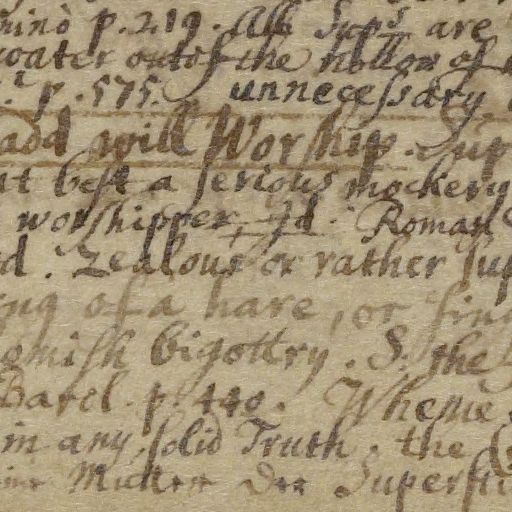 p. 219. All are
water out of the hollow of
p. 575. unnecessary.
add will Worship. Sup
at best a serious mockery
worshipper. Id. Roman
d. Zealous or rather sup
ing of a hare, or sing
omish bigottry. S. the
Barcl. p. 440. Whence
in any solid Truth. the
Supersti